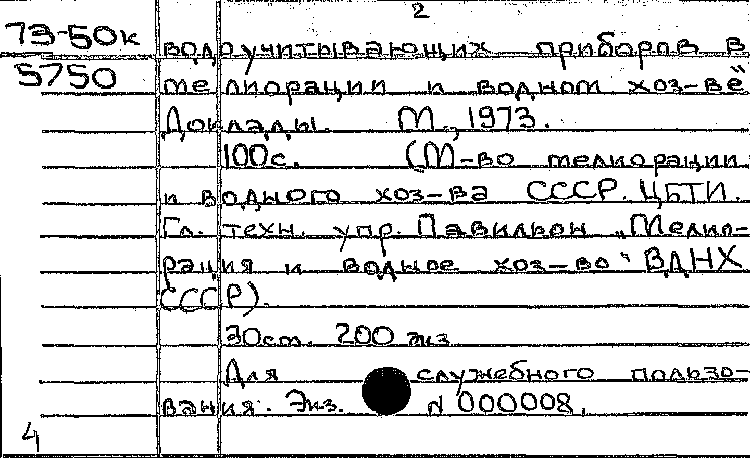 2
73-50к водоучитывающих приборов в
5750 мелиорации и водном хоз-ве"
Доклады. М., 1973.
100с. (М-во мелиорации
и водного хоз-ва СССР. ЦБТИ.
Гл. техн. упр. Павильон „Мелио-
рация и водное хоз-во" ВДНХ
СССР).
30см. 200 экз
Для служебного пользо-
вания. Экз. N 000008.
4